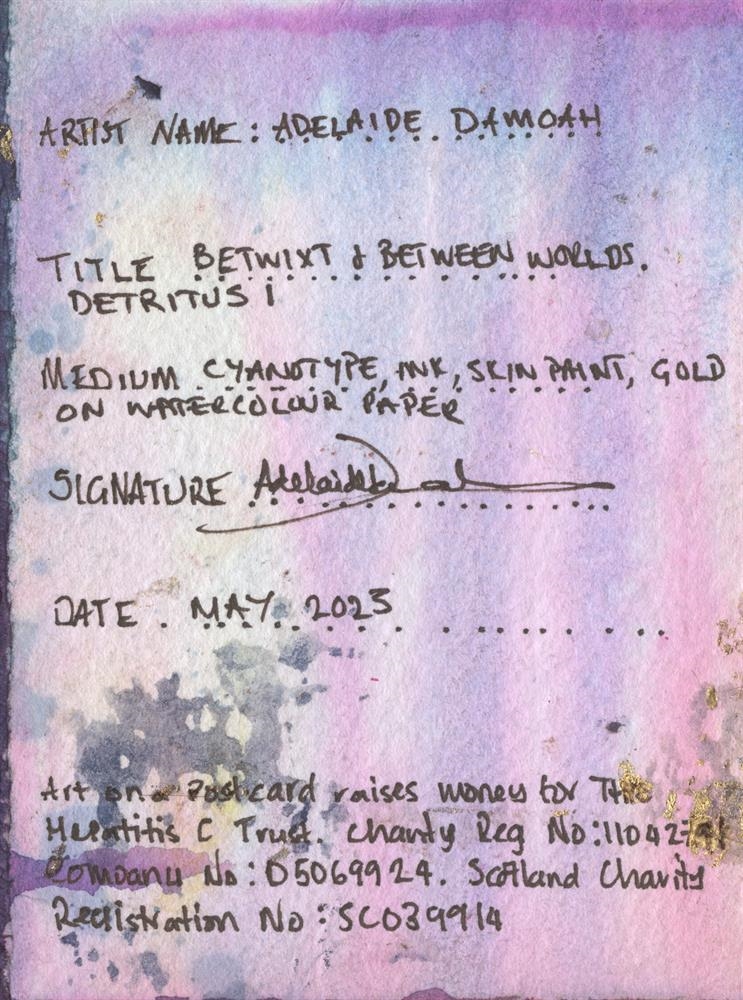 ARTIST NAME: ADELAIDE DAMOAH
TITLE BETWIXT & BETWEEN WORLDS.
DETRITUS I
MEDIUM CYANOTYPE, INK, SKIN PAINT, GOLD
ON WATERCOLOUR PAPER
SIGNATURE Adelaide Damoah
DATE. MAY 2023
Art on a Postcard raises money for The
Hepatitis C Trust. Charity Reg No: 1104279
Company No: 05069924. Scotland Charity
Registration No: SC039914